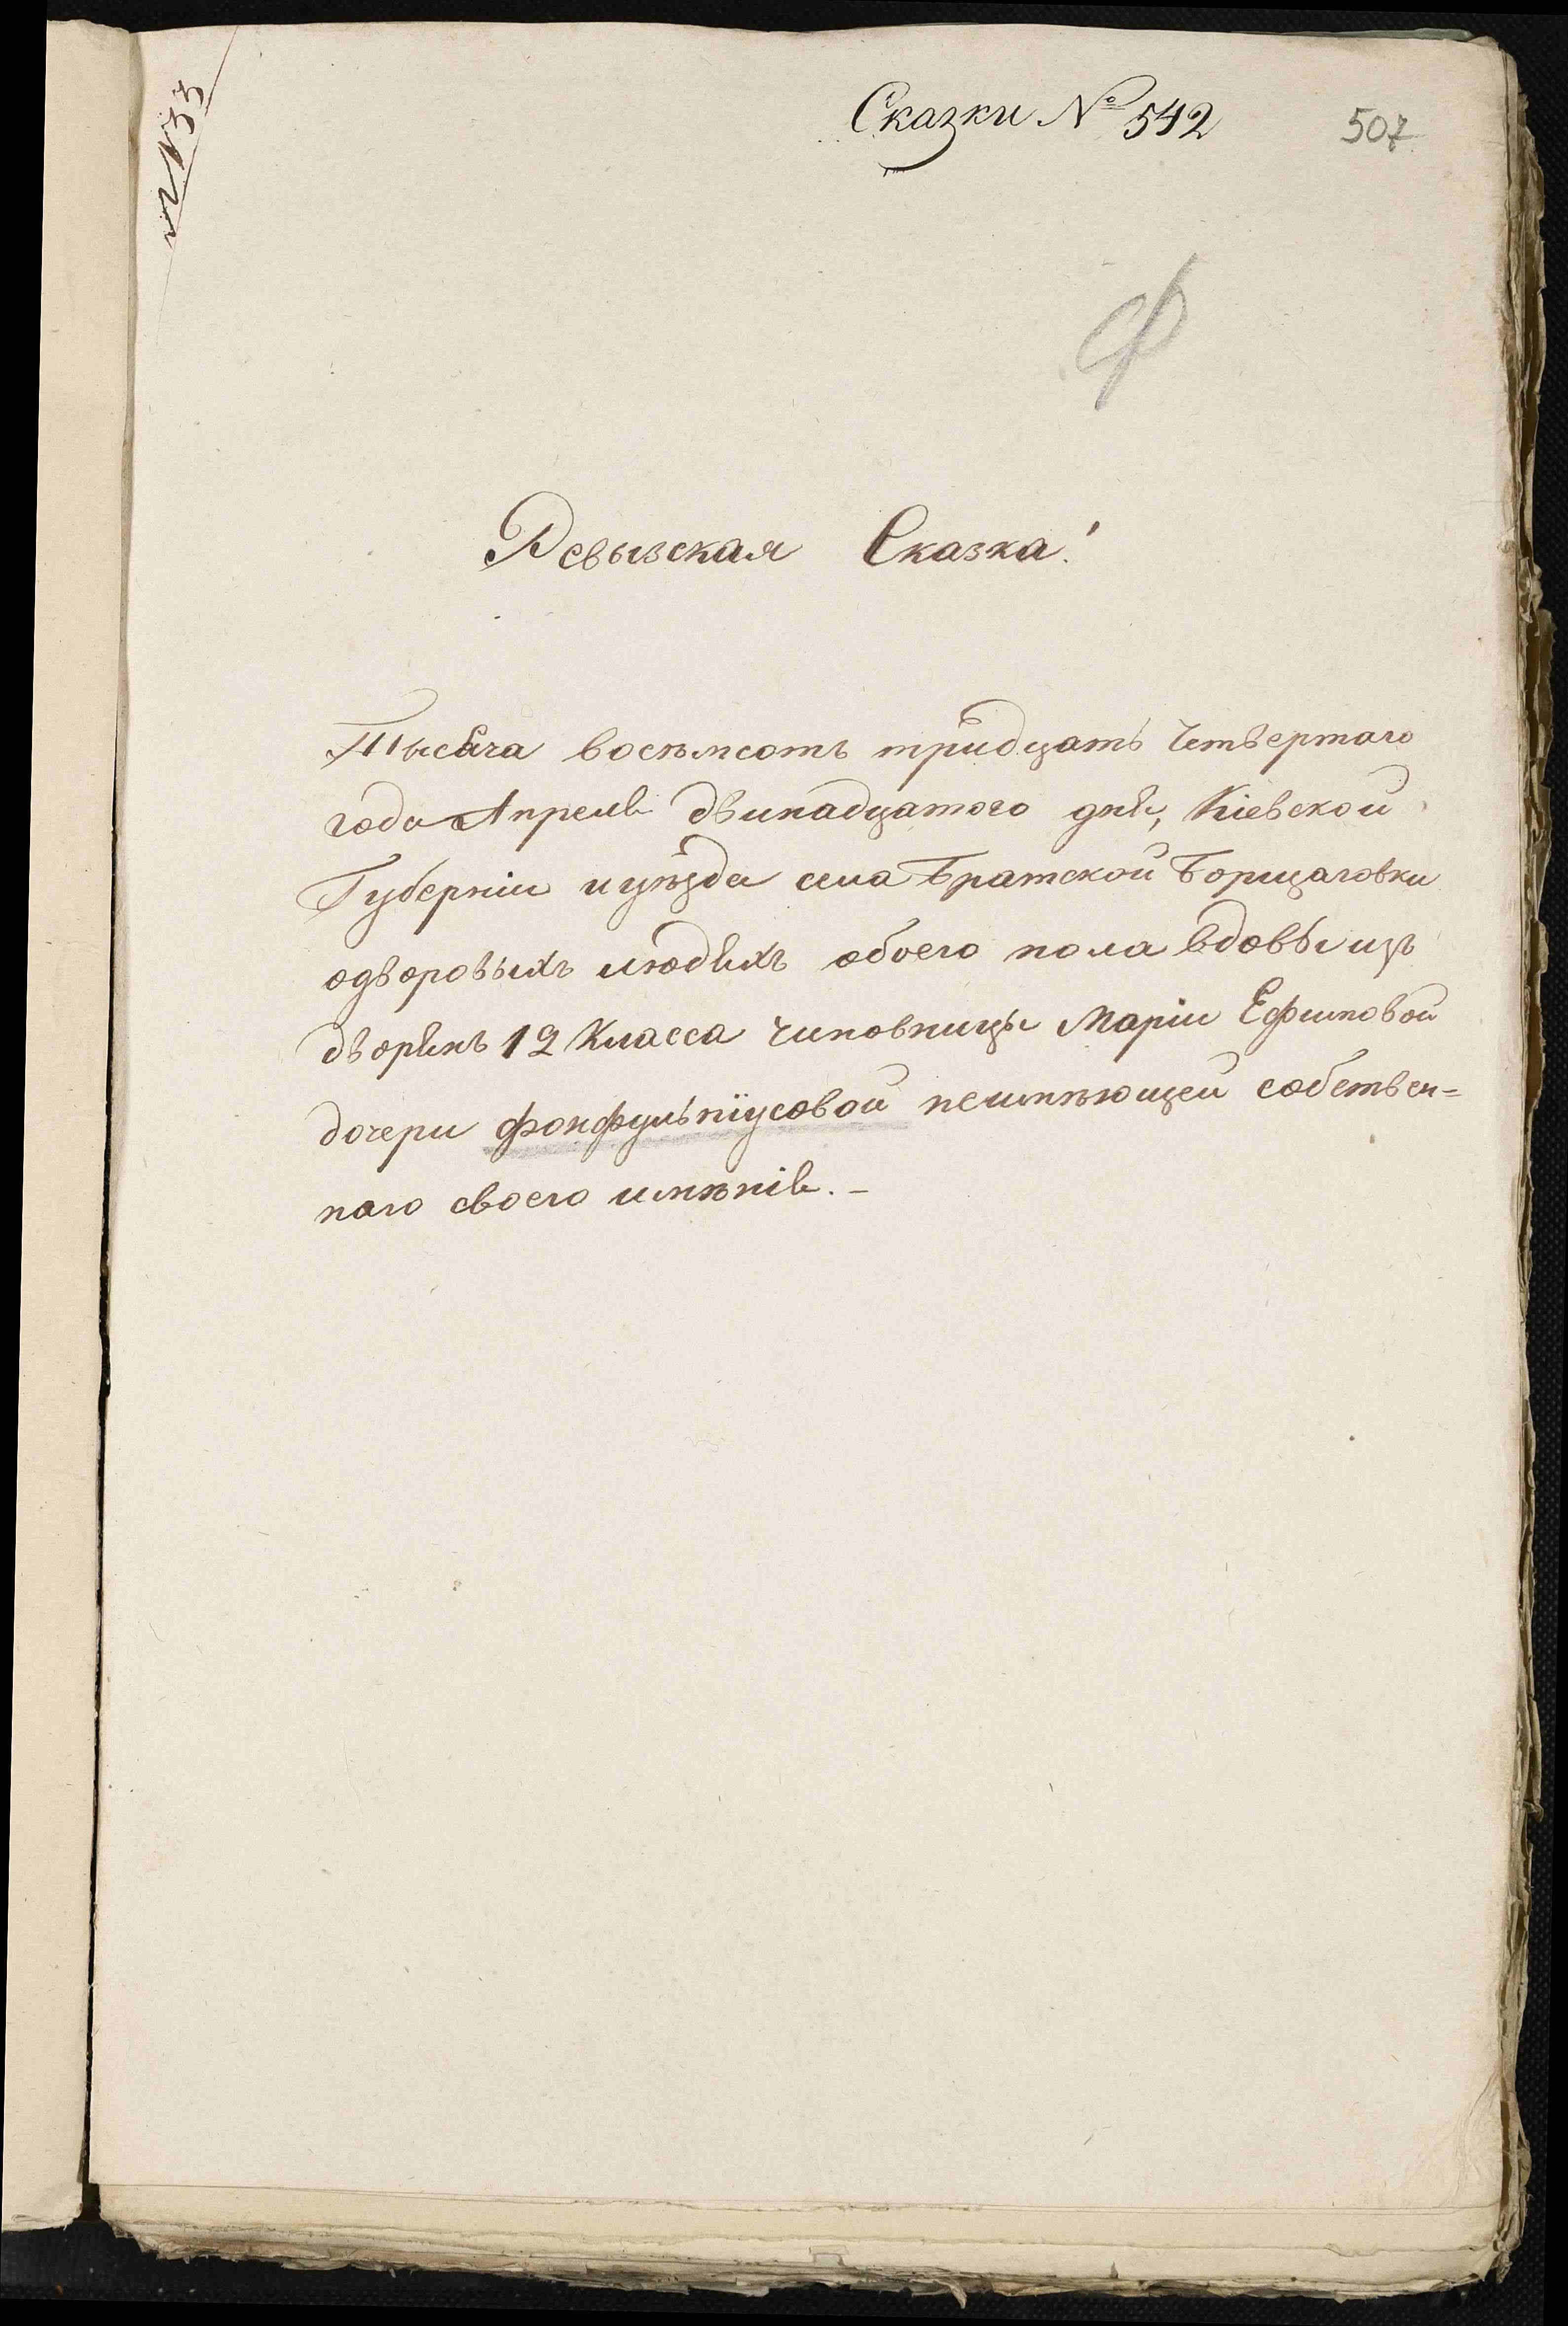 Сказки № 542
507
Ф
Ревызская Сказка!
Тысяча восемсотъ тридцать Четвертаго
года Апреля двинадцатого дня, Кіевской
Губерніи и уѣзда села Братской Борщаговки
одворовыхъ людяхъ обоего пола вдовы изъ
дворянъ 12 Класса Чиновницы Маріи Ефимовой
дочери фонфульпіусовой неимѣющей собствен=
наго своего имѣнія.-